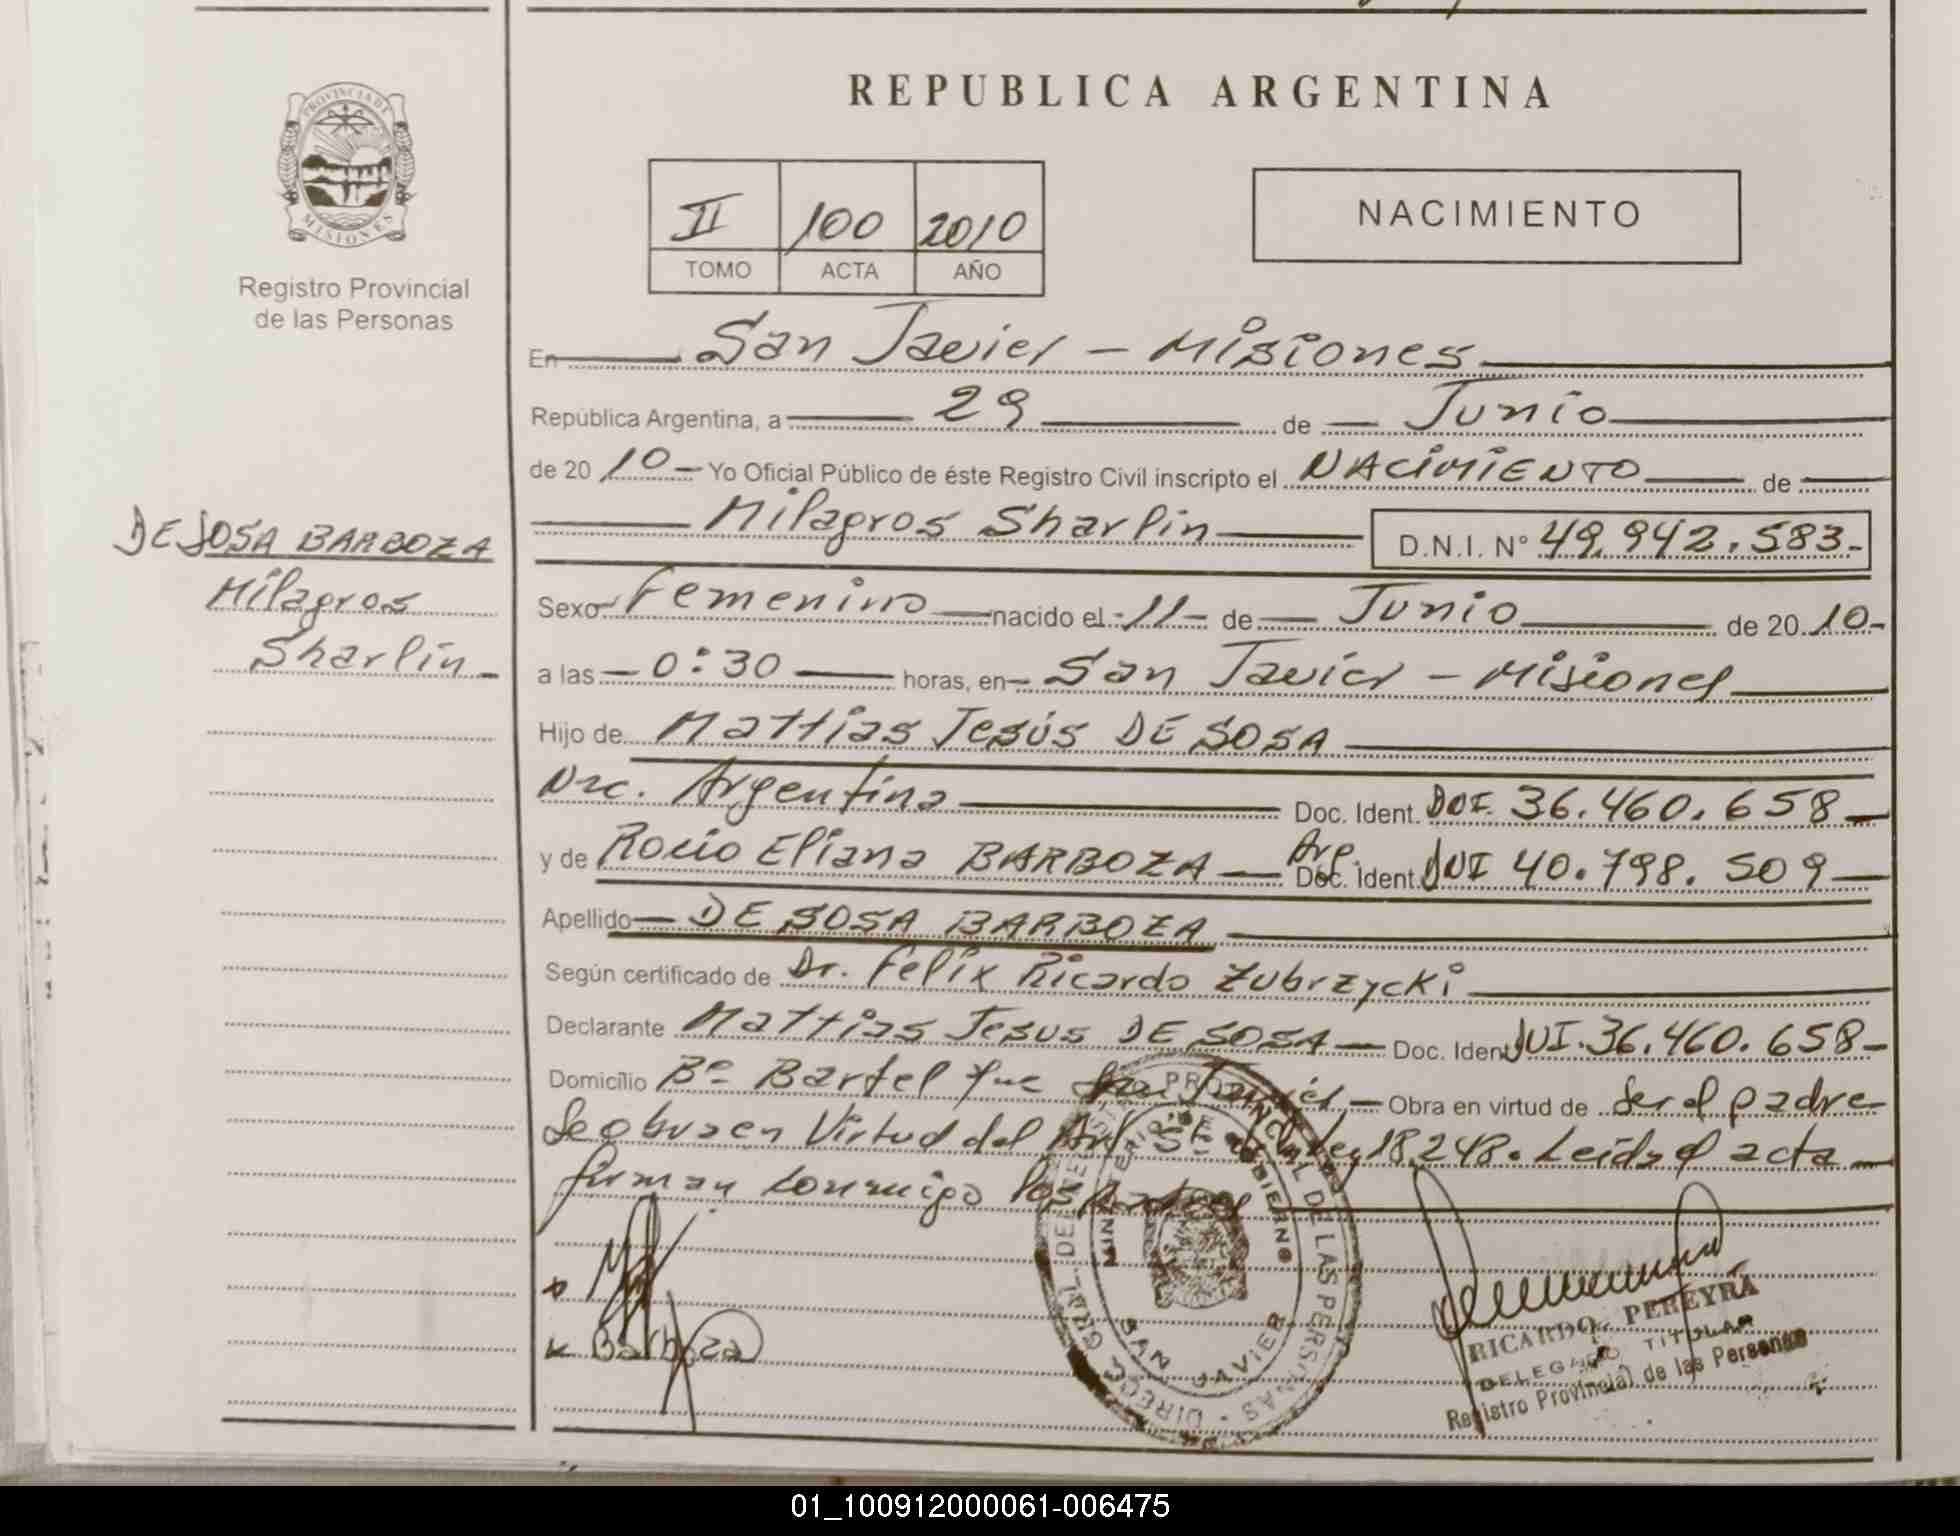 REPUBLICA ARGENTINA
PROVINCIA DE
MISIONES
Registro Provincial
de las Personas
II 100 2010
TOMO ACTA AÑO
NACIMIENTO
En San Javier - Misiones
República Argentina, a 29 de Junio
de 20 10 - Yo Oficial Público de éste Registro Civil inscripto el NACIMIENTO de
Milagros Sharlin D.N.I. N° 49.942.583-
DE SOSA BARBOZA
Milagros
Sharlin -
Sexo Femenino nacido el 11 de Junio de 20 10-
a las 0:30 horas, en San Javier - Misiones
Hijo de Mattias Jesús DE SOSA
Nac. Argentina Doc. Ident. DNI. 36.460.658
y de Rocio Eliana BARBOZA Arg. Doc. Ident. DNI 40.798.509
Apellido DE SOSA BARBOZA
Según certificado de Dr. Felix Ricardo Zubrzycki
Declarante Mattias Jesus DE SOSA Doc. Ident DNI. 36.460.658-
Domicilio B° Bartel San Javier - Obra en virtud de Ser el padre
Se obra en Virtud del Art 5° Ley 18.248. Leida el acta
firman conmigo los padres
Barboza
DIREC. GRAL. DEL REGISTRO PROVINCIAL DE LAS PERSONAS
MINISTERIO DE GOBIERNO
SAN JAVIER
RICARDO PEREYRA
DELEGADO TITULAR
Registro Provincial de las Personas
01_100912000061-006475